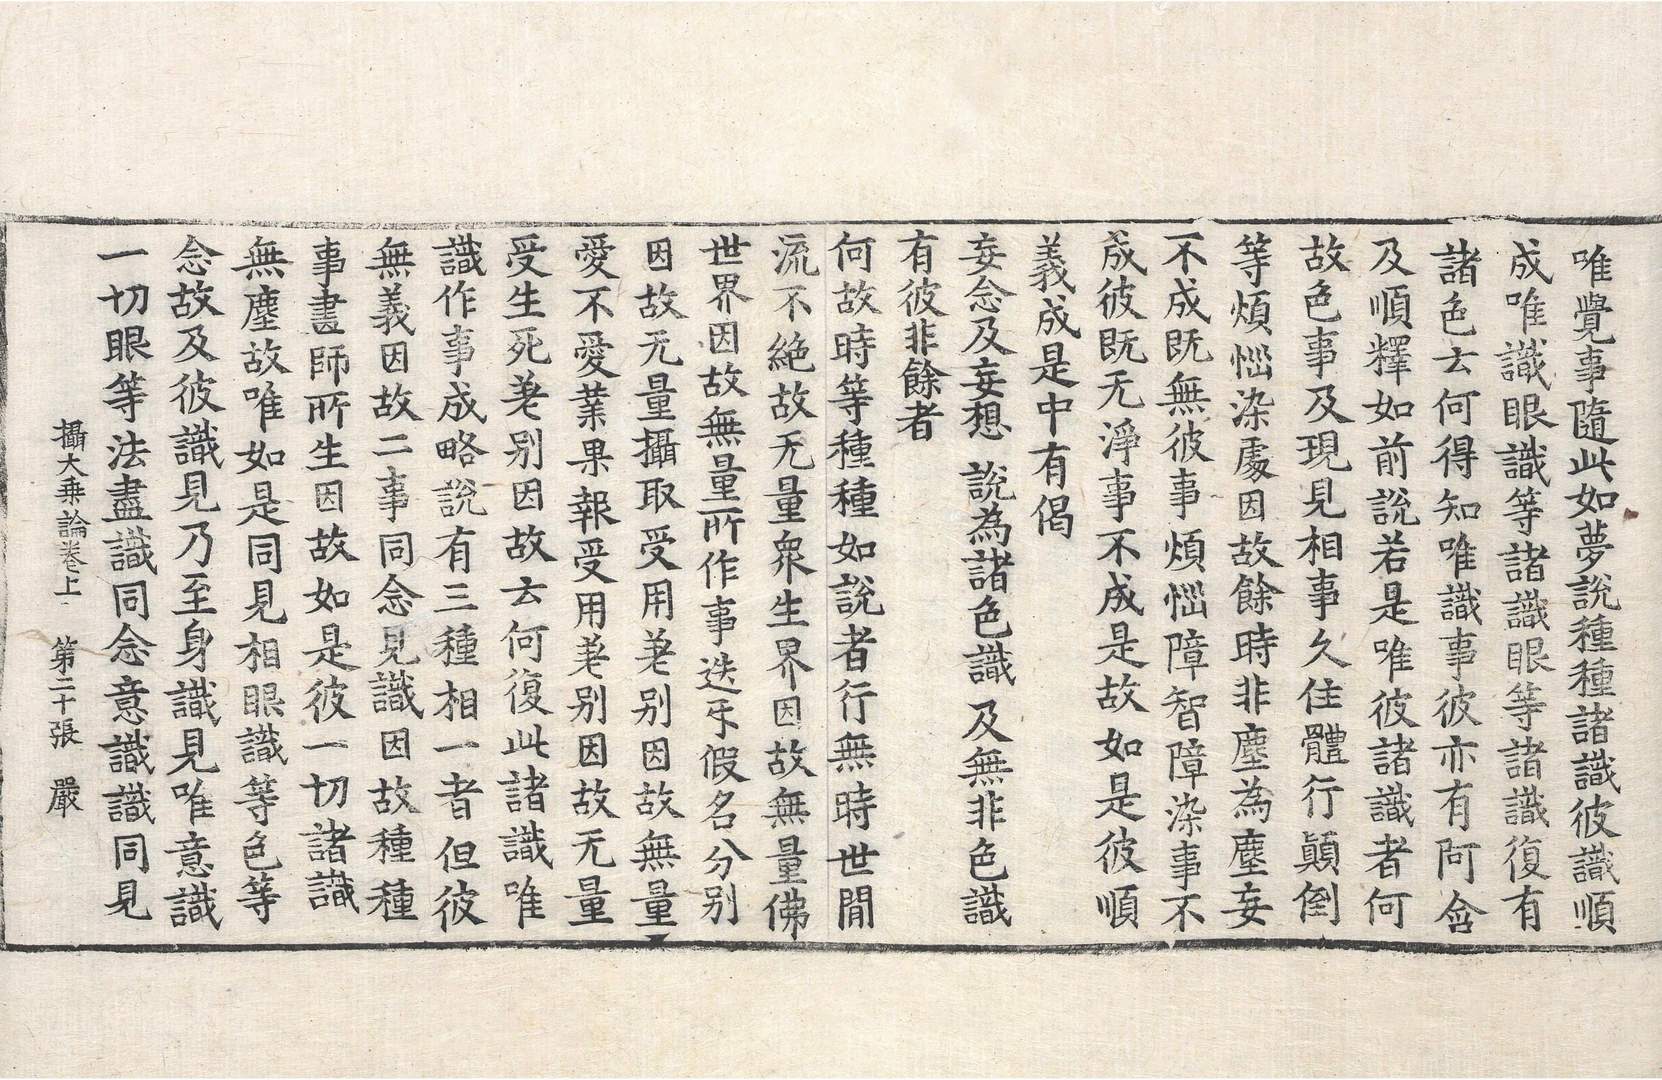 唯覺事隨此如夢說種種諸識彼識順
成唯識眼識等諸識眼等諸識復有
諸色云何得知唯識事彼亦有阿含
及順釋如前說若是唯彼諸識者何
故色事及現見相事久住體行顛倒
等煩惱染處因故餘時非塵為塵妄
不成既無彼事煩惱障智障染事不
成彼既无淨事不成是故如是彼順
義成是中有偈
妄念及妄想 說為諸色識 及無非色識
有彼非餘者
何故時等種種如說者行無時世閒
流不絶故无量衆生界因故無量佛
世界因故無量所作事迭㸦假名分别
因故无量攝取受用差别因故無量
愛不愛業果報受用差别因故无量
受生死差别因故云何復此諸識唯
識作事成略說有三種相一者但彼
無義因故二事同念見識因故種種
事畫師所生因故如是彼一切諸識
無塵故唯如是同見相眼識等色等
念故及彼識見乃至身識見唯意識
一切眼等法盡識同念意識識同見
攝大乘論卷上 第二十張 嚴